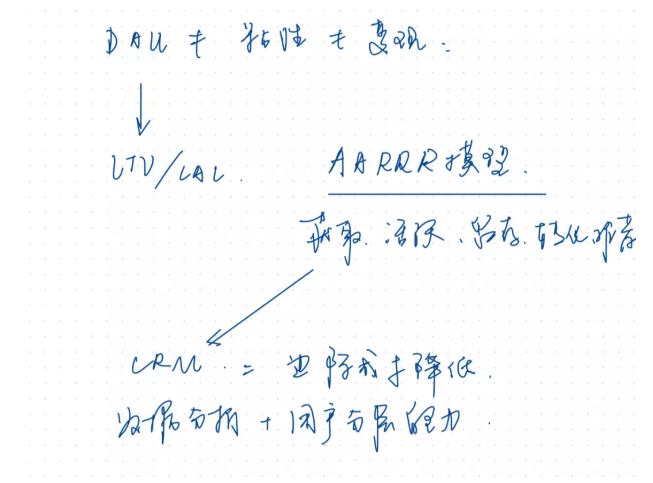 DAU ≠ 粘性 ≠ 变现:
LTV/CAC.
AARRR模型.
获取、活跃、留存、转化、推荐
CRM = 边际成本降低.
数据分析 + 用户分层能力.